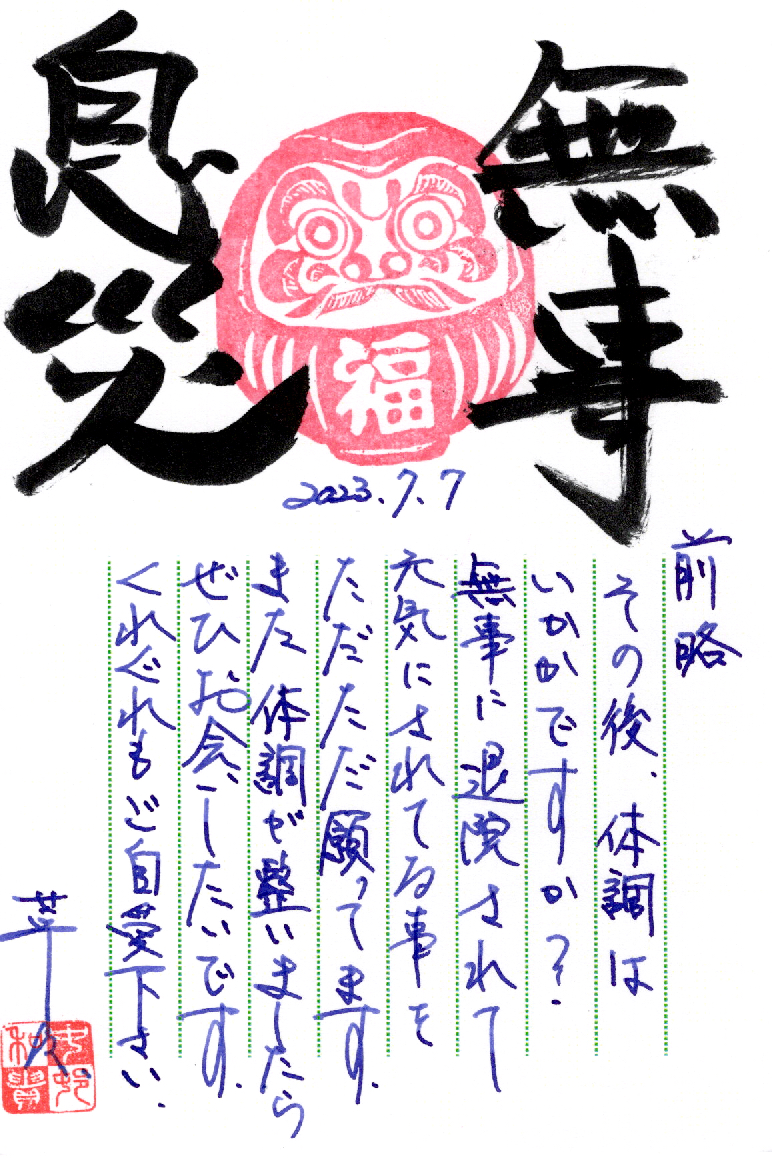 無事
息災
福
2023.7.7
前略
その後、体調は
いかがですか?
無事に退院されて
元気にされてる事を
ただただ願ってます。
また体調が整いましたら
ぜひお会いしたいです。
くれぐれもご自愛下さい。
草々